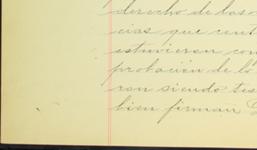 derecho de las
cias que
estuvieron con
probación de lo
ron siendo tes
bien firman